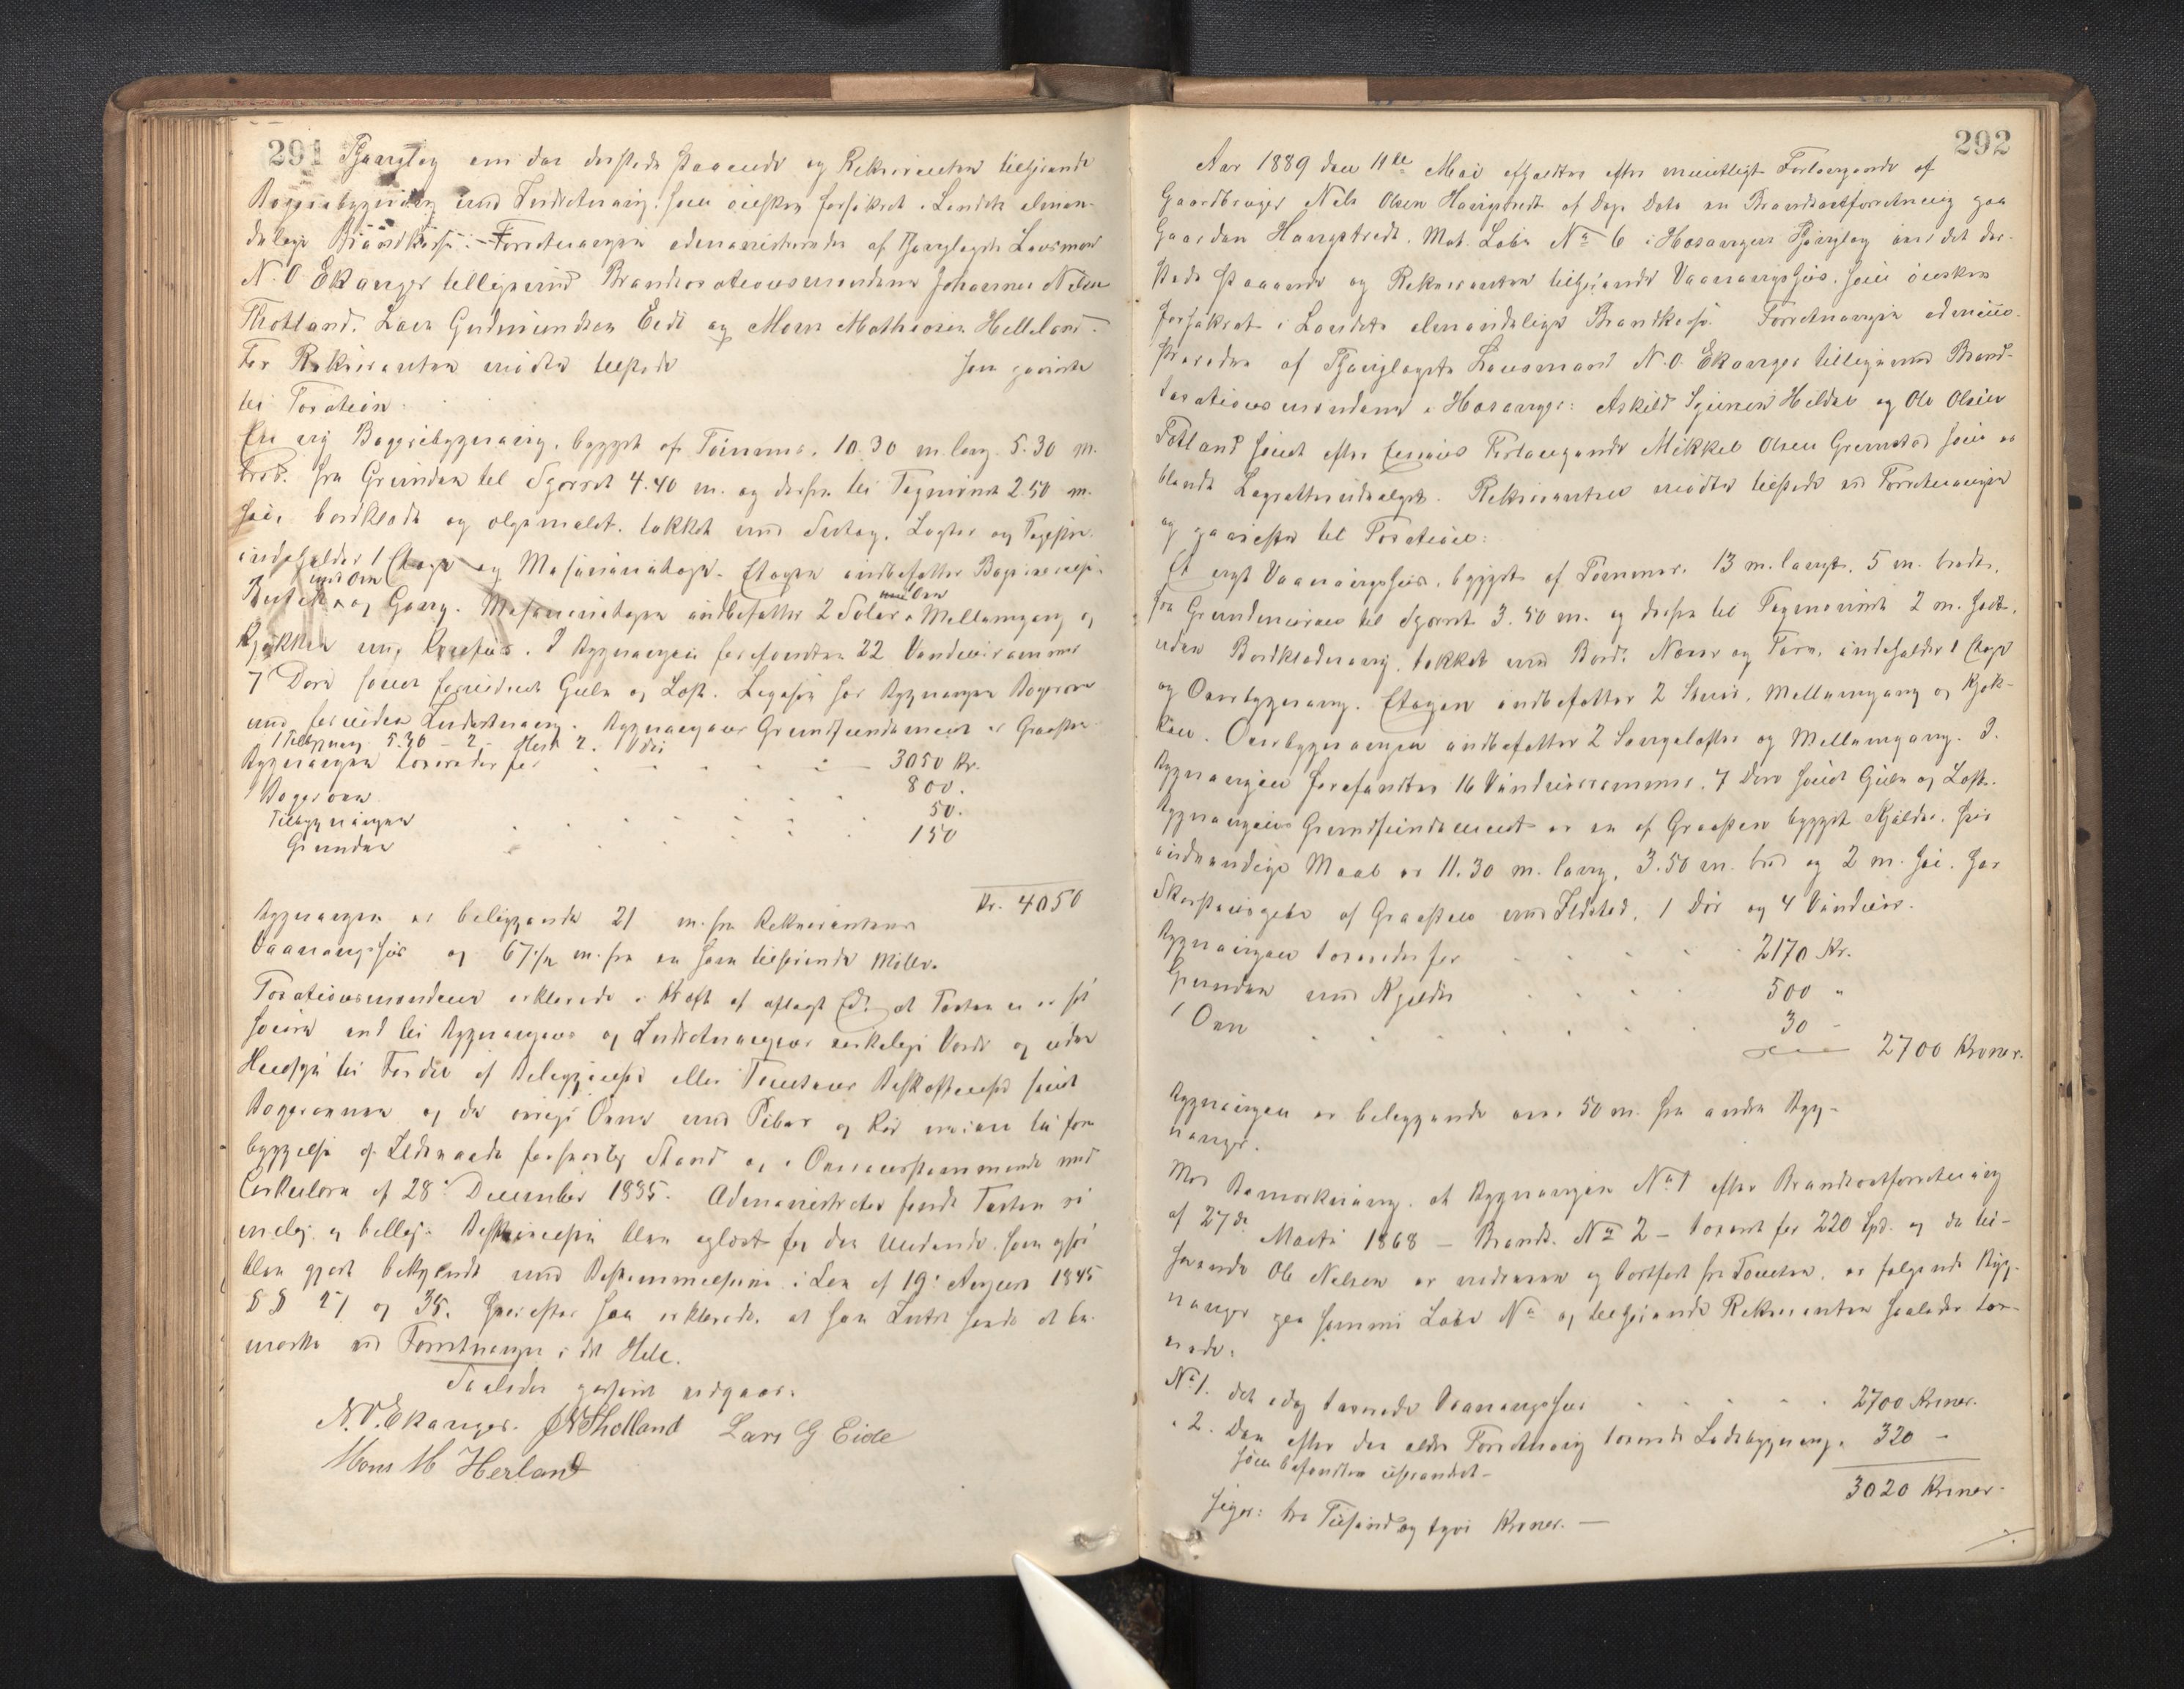 291 Thinglag over det dersteds staaende og Rekvirenten tilhørende
Bageribygning med Indretning, som ønskes forsikret i Landets almin-
delige Brandkasse. Forretningen administreredes af Thinglagets Lensmand
N. O. Ekanger tilligemed Brandtaxationsmændene Johannes Nilsen
Tholland, Lars Gudmundsen Eide og Mons Mathiasen Helleland.
For Rekvirenten mødte tilstede som paaviste
til Taxation:
En ny Bageribygning, bygget af Tømmer, 10.30 m. lang, 5.30 m.
bred, fra Grunden til Gesimset 4.40 m. og derfra til Tagmønet 2.50 m.
høi, bordklædt og oljemalet, tækket med Sutag, Lægter og Tagsten
indeholder 1 Etage og Mesaninetage. Etagen indbefatter Bageriværelse,
Butik med Ovn og Gang. Mesaninetagen indbefatter 2 Stuer med Ovn, Mellemgang og
Kjøkken med Komfur. I Bygningen forefandtes 22 Vinduesrammer
7 Døre samt fornødent Gulv og Loft. Ligesaa har Bygningen Bagerovn
med fornøden Indretning. Bygningens Grundfundament er Graasten.
1 Tilbygning 5.30 - 2, Høid 2. 1 Dør
Bygningen taxeredes for 3050 Kr.
1 Bagerovn 800.
Tilbygningen 50.
Grunden 150
Kr. 4050
Bygningen er beliggende 21 m. fra Rekvirentens
Vaaningshus og 67 1/2 m. fra en ham tilhørende Mølle.
Taxationsmændene erklærede i Kraft af aflagt Ed, at Taxten er sat
saavidt til Bygningens og Indretningens virkelige Værdi og uden
Hensyn til Fordel af Beliggenhed eller Tomtens Beskaffenhed samt
Bagerovnen og de øvrige Ovne med Piber og Rør var til fore-
byggelse af Ildsvaade i forsvarlig Stand og i Overensstemmelse med
Cirkulære af 28de December 1835. Administrator fandt Taxten ri-
melig og billig. Beskrivelsen blev oplæst for den Mødende som ogsaa
blev gjort bekjendt med Bestemmelserne i Lov af 19de August 1845
§§ 27 og 35, hvorefter han erklærede, at han Intet havde at be-
mærke ved Forretningen i det Hele.
Saaledes passeret vidner.
N. O. Ekanger. J N Tholland Lars G Eide
Mons M Herland
292
Aar 1889 den 11te Mai afholdtes efter mundtligt Forlangende af
Gaardbruger Nils Olsen Haugstvedt af Dags Dato en Brandtaxtforretning paa
Gaarden Haugstvedt, Mat. Løbe No 6 i Hosanger Thinglag over det der-
steds staaende og Rekvirenten tilhørende Vaaningshus, som ønskes
forsikret i Landets almindelige Brandkasse. Forretningen admini-
streredes af Thinglagets Lensmand N. O. Ekanger tilligemed Brand-
taxationsmændene i Hosanger: Askild Hildal og Ole Olsen
Fotland samt efter Forlangende Mikkel Olsen Gremstad som er
blandt Lagrettet udvalgt. Rekvirenten mødte tilstede ved Forretningen
og paaviste til Taxation:
Et nyt Vaaningshus, bygget af Tømmer, 13 m. langt, 5 m. bredt,
fra Grundmuren til Gesimset 3.50 m. og derfra til Tagmønet 2 m. høit,
uden Bordklædning, tækket med Bord, Næver og Torv, indeholder 1 Etage
og Overbygning. Etagen indbefatter 2 Stuer, Mellemgang og Kjøk-
ken. Overbygningen indbefatter 2 Sengelofter og Mellemgang. I
Bygningen forefandtes 16 Vinduesrammer, 7 Døre samt Gulv og Loft.
Bygningens Grundfundament er en af Graasten bygget Kjælder, hvis
indvendige Maal er 11.30 m. lang, 3.50 m. bred og 2 m. høi, har
Skorstenspibe af Graasten med Ildsted, 1 Dør og 4 Vinduer.
Bygningen taxeredes for 2170 Kr.
Grunden med Kjælder 500 "
1 Ovn 30 -
2700 Kroner.
Bygningen er beliggende over 50 m. fra andre Byg-
ninger.
Med Bemærkning, at Bygningen No 1 efter Brandtaxtforretning
af 27de Marts 1868 - Brandt. No 2 - taxeret for 220 Spd. og da til-
hørende Ole Nelsen er nedreven og bortført fra Tomten, er følgende Byg-
ninger paa samme Løbe No og tilhørende Rekvirenten saaledes tax-
erede:
No 1. det idag taxerede Vaaningshus 2700 Kroner.
" 2. Den efter den ældre Forretning taxerede Ladebygning, 320 -
som befandtes uforandret -
3020 Kroner.
siger: tre Tusind og tyve Kroner. -